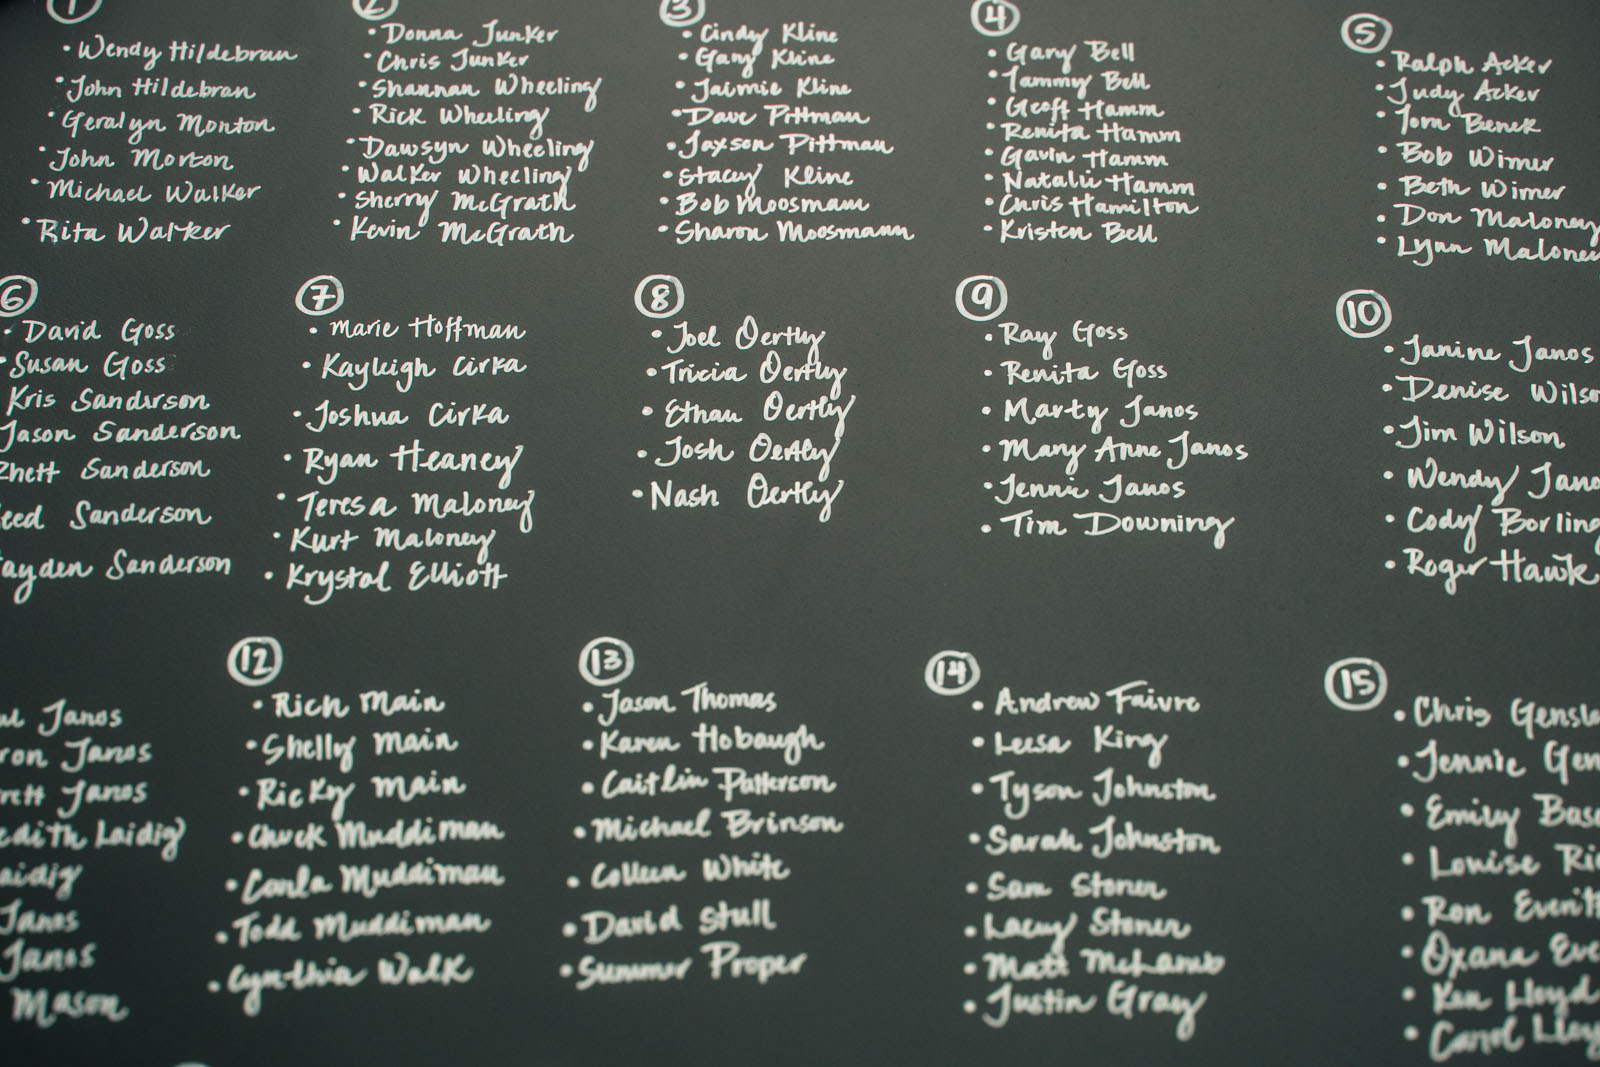 1
• Wendy Hildebran
• John Hildebran
• Geralyn Monton
• John Morton
• Michael Walker
• Rita Walker
2
• Donna Junker
• Chris Junker
• Shannan Wheeling
• Rick Wheeling
• Dawsyn Wheeling
• Walker Wheeling
• Sherry McGrath
• Kevin McGrath
3
• Cindy Kline
• Gary Kline
• Jaimie Kline
• Dave Pittman
• Jaxson Pittman
• Stacey Kline
• Bob Moosmann
• Sharon Moosmann
4
• Gary Bell
• Tammy Bell
• Geoff Hamm
• Renita Hamm
• Gavin Hamm
• Natalie Hamm
• Chris Hamilton
• Kristen Bell
5
• Ralph Acker
• Judy Acker
• Tom Benek
• Bob Wimer
• Beth Wimer
• Don Maloney
• Lynn Maloney
6
• David Goss
• Susan Goss
Kris Sanderson
Jason Sanderson
Rhett Sanderson
eed Sanderson
ayden Sanderson
7
• Marie Hoffman
• Kayleigh Cirka
• Joshua Cirka
• Ryan Heaney
• Teresa Maloney
• Kurt Maloney
• Krystal Elliott
8
• Joel Oertly
• Tricia Oertly
• Ethan Oertly
• Josh Oertly
• Nash Oertly
9
• Ray Goss
• Renita Goss
• Marty Janos
• Mary Anne Janos
• Jennie Janos
• Tim Downing
10
• Janine Janos
• Denise Wilso
• Jim Wilson
• Wendy Jano
• Cody Borling
• Roger Hawk
Janos
ron Janos
rett Janos
edith Laidig
aidig
Janos
Janos
Mason
12
• Rich Main
• Shelly Main
• Ricky Main
• Chuck Muddiman
• Carla Muddiman
• Todd Muddiman
• Cynthia Walk
13
• Jason Thomas
• Karen Hobaugh
• Caitlin Patterson
• Michael Brinson
• Colleen White
• David Stull
• Summer Proper
14
• Andrew Faivre
• Leesa King
• Tyson Johnston
• Sarah Johnston
• Sam Stoner
• Lacey Stoner
• Matt McLamb
• Justin Gray
15
• Chris Gensle
• Jennie Gen
• Emily Bas
• Louise Ri
• Ron Everitt
• Oxana Eve
• Ken Lloyd
• Carol Lloy